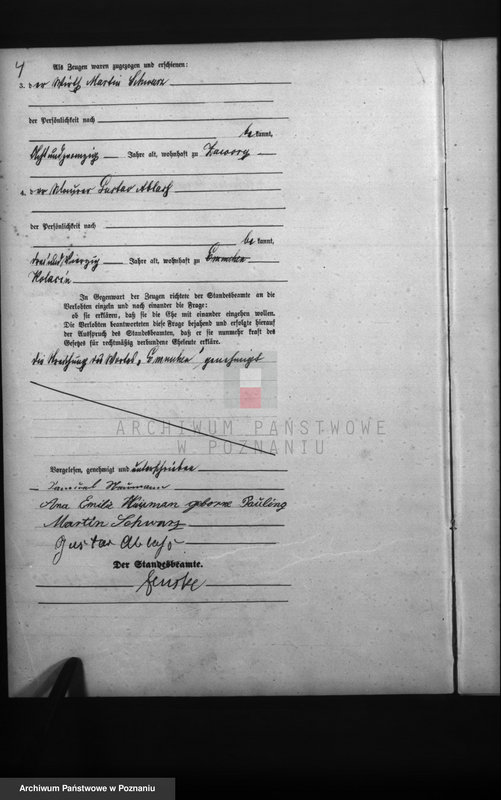 4
Als Zeugen waren zugezogen und erschienen:
3. der Wirth Martin Schwarz
der Persönlichkeit nach
bekannt,
Acht und zwanzig Jahre alt, wohnhaft zu Zaworry
4. der Maurer Gustav Ablass
der Persönlichkeit nach
bekannt,
drei und vierzig Jahre alt, wohnhaft zu
In Gegenwart der Zeugen richtete der Standesbeamte an die
Verlobten einzeln und nach einander die Frage:
ob sie erklären, daß sie die Ehe mit einander eingehen wollen.
Die Verlobten beantworteten diese Frage bejahend und erfolgte hierauf
der Ausspruch des Standesbeamten, daß er sie nunmehr kraft des
Gesetzes für rechtmäßig verbundene Eheleute erkläre.
die Streichung des Wortes genehmigt
ARCHIWUM PAŃSTWOWE
W POZNANIU
Vorgelesen, genehmigt und unterschrieben
Samuel Neumann
Ana Emilie geborne Pauling
Martin Schwarz
Gustav
Der Standesbeamte.
Fenske
Archiwum Państwowe w Poznaniu